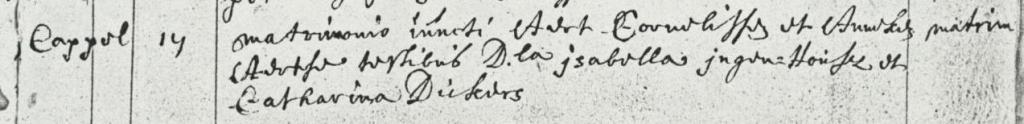 Cappel 14 matrimonio iuncti Aert Cornelissen et Anneke matrim
Aertse testibus D.la jsabella jngen=Housz et
Catharina Dickers